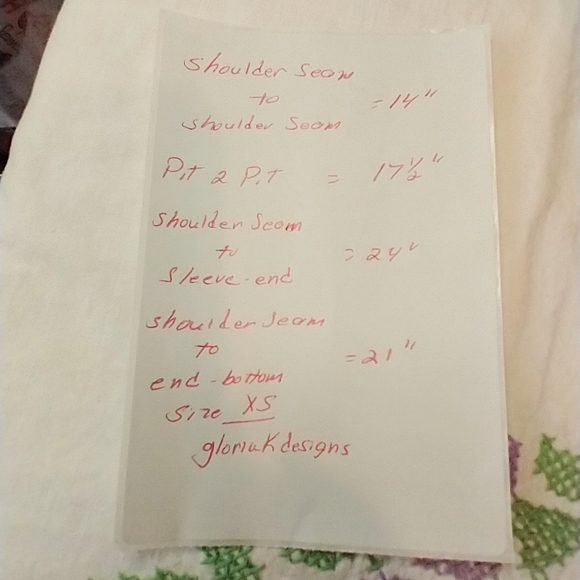 Shoulder Seam
to = 14"
Shoulder Seam
Pit 2 Pit = 17 1/2"
Shoulder Seam
to = 24"
Sleeve-end
Shoulder Seam
to = 21"
end-bottom
Size XS
gloriaKdesigns